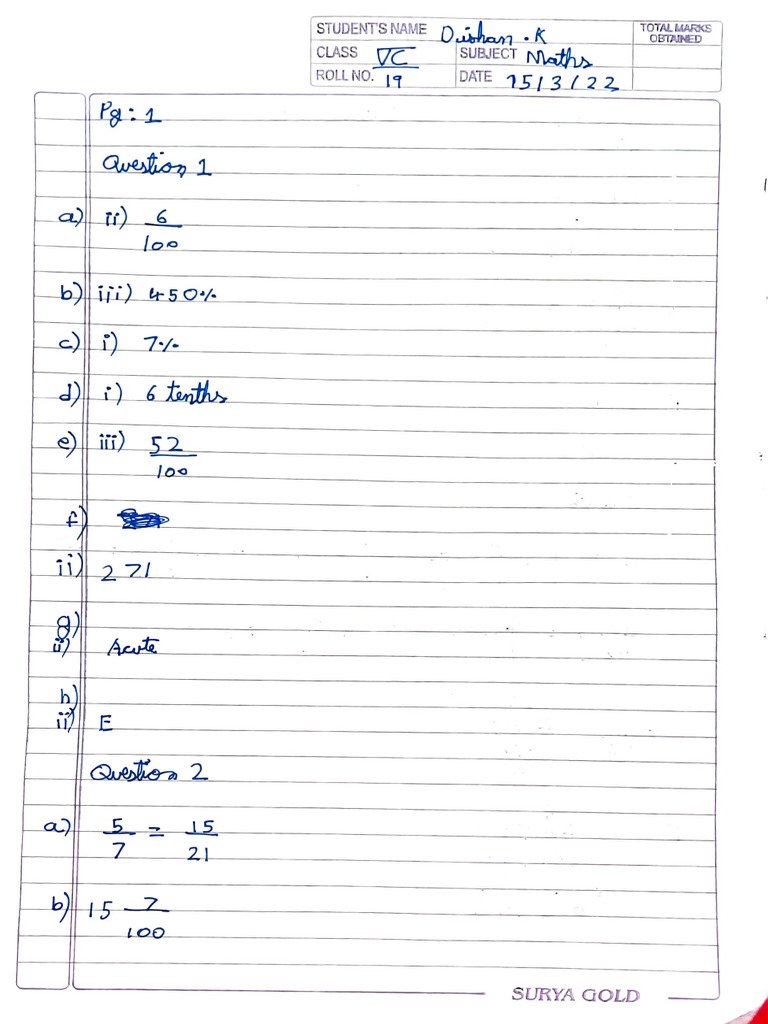 STUDENT'S NAME Dishan . K TOTAL MARKS OBTAINED
CLASS VC SUBJECT Maths
ROLL NO. 19 DATE 15/3/22
Pg: 1
Question 1
a) ii) 6/100
b) iii) 450%
c) i) 7%
d) i) 6 tenths
e) iii) 52/100
f)
ii) 271
g)
ii) Acute
h)
ii) E
Question 2
a) 5/7 = 15/21
b) 15 7/100
SURYA GOLD